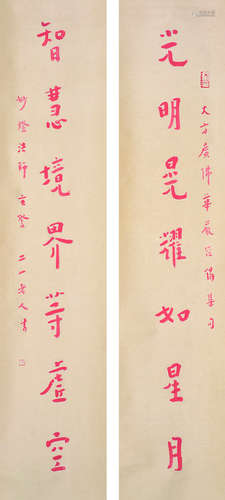 大方廣佛華嚴經偈集句
光明晃耀如星月
智慧境界等虛空
妙燈法師玄鑒
二一老人書